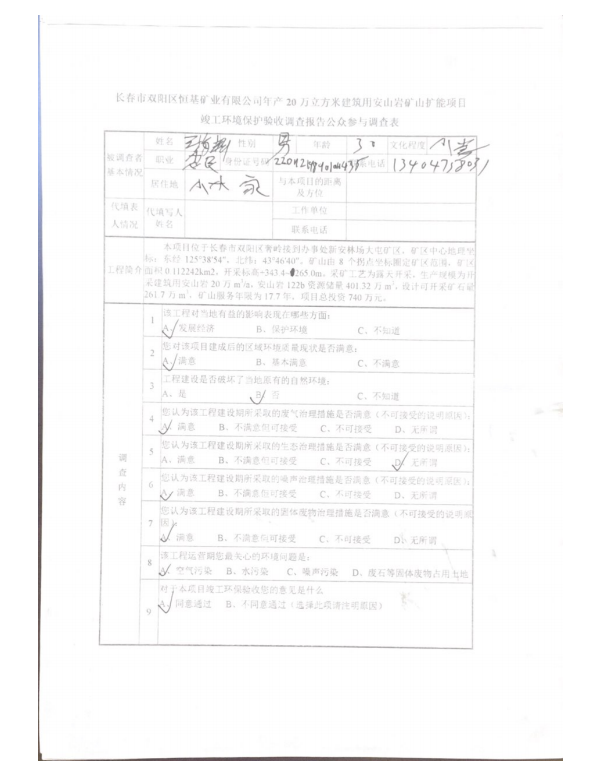 长春市双阳区恒基矿业有限公司年产 20 万立方米建筑用安山岩矿山扩能项目
竣工环境保护验收调查报告公众参与调查表
被调查者基本情况 姓名 性别 男 年龄 30 文化程度 小学
职业 农民 身份证号码 联系电话
居住地 与本项目的距离及方位
代填表人情况 代填写人姓名 工作单位
联系电话
工程简介 本项目位于长春市双阳区奢岭接到办事处新安林场大屯矿区。矿区中心地理坐
标:东经 125°38′54″,北纬:43°46′40″。矿山由 8 个拐点坐标圈定矿区范围。矿区
面积 0.112242km2。开采标高+343.4-+265.0m。采矿工艺为露天开采。生产规模为开
采建筑用安山岩 20 万 m³/a。安山岩 122b 资源储量 401.32 万 m³。设计可开采矿石量
261.7 万 m³。矿山服务年限为 17.7 年。项目总投资 740 万元。
调查内容
1 该工程对当地有益的影响表现在哪些方面:
A、发展经济 B、保护环境 C、不知道
2 您对该项目建成后的区域环境质量现状是否满意:
A、满意 B、基本满意 C、不满意
3 工程建设是否破坏了当地原有的自然环境:
A、是 B、否 C、不知道
4 您认为该工程建设期所采取的废气治理措施是否满意(不可接受的说明原因):
A、满意 B、不满意但可接受 C、不可接受 D、无所谓
5 您认为该工程建设期所采取的生态治理措施是否满意(不可接受的说明原因):
A、满意 B、不满意但可接受 C、不可接受 D、无所谓
6 您认为该工程建设期所采取的噪声治理措施是否满意(不可接受的说明原因):
A、满意 B、不满意但可接受 C、不可接受 D、无所谓
7 您认为该工程建设期所采取的固体废物治理措施是否满意(不可接受的说明原
因):
A、满意 B、不满意但可接受 C、不可接受 D、无所谓
8 该工程运营期您最关心的环境问题是:
A、空气污染 B、水污染 C、噪声污染 D、废石等固体废物占用土地
9 对于本项目竣工环保验收您的意见是什么
A、同意通过 B、不同意通过(选择此项请注明原因)